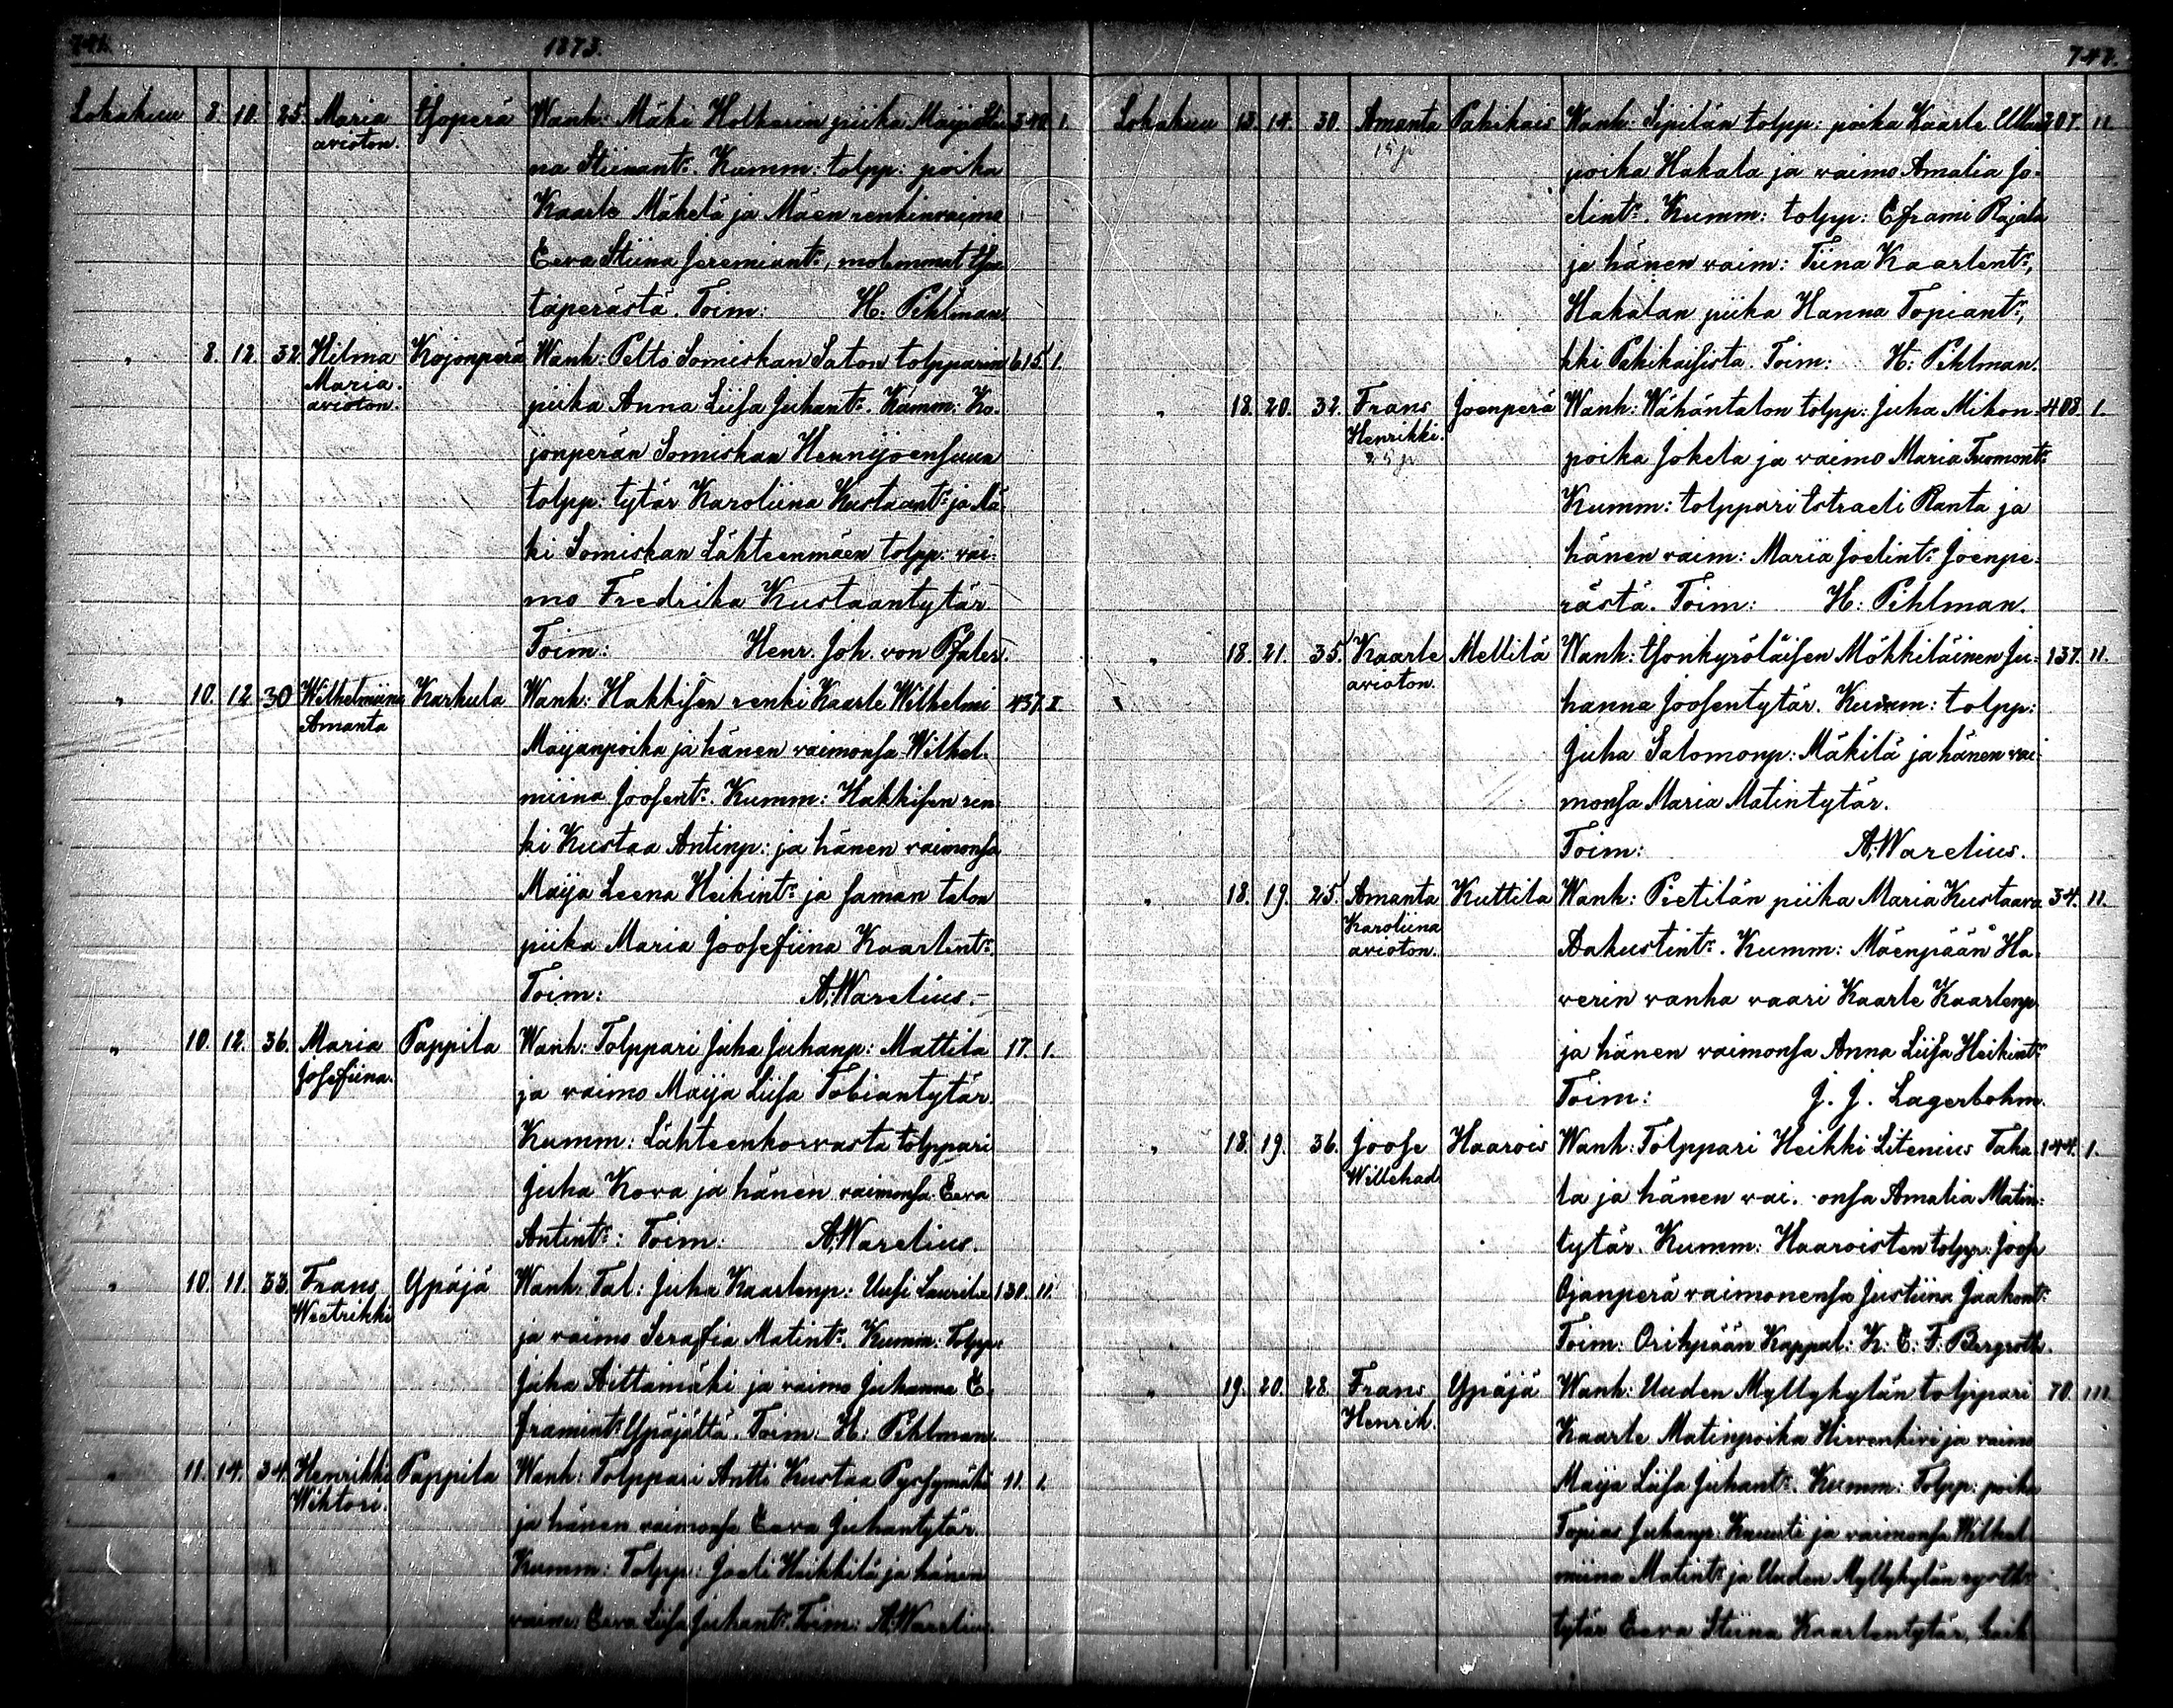 741. 1873.
Lokakuu 8. 10. 25. Maria Isoperä Wanh: Mäki Holkarin piika Maija Stii- 340. 1.
avioton. na Stiinant:r Kumm: tolpp: poika
Kaarle Mäkelä ja Mäen renkin vaimo
Eeva Stiina Jeremiant:r, molemmat Iso-
taperästä. Toim: H. Pihlman.
" 8. 12. 32. Hilma Kojonperä Wanh: Pelto Somiskan Saton tolpparin 615. 1.
Maria. piika Anna Liisa Juhant:r. Kumm: Ko-
avioton. jonperän Somiskan Hennijoensuun
tolpp: tytär Karoliina Kustaant:r ja Mä-
ki Somiskan Lähteenmäen tolpp: vai-
mo Fredrika Kustaantytär
Toim: Henr. Joh. von Pfaler.
" 10. 12. 30 Wilhelmiina Karhula Wanh: Hakkisen renki Kaarle Wilhelmi 437. I
Amanta Maijanpoika ja hänen vaimonsa Wilhel-
miina Joosent:r. Kumm: Hakkisen ren-
ki Kustaa Antinp: ja hänen vaimonsa
Maija Leena Heikint:r ja saman talon
piika Maria Joosefiina Kaarlent:r
Toim: A. Warelius.
" 10. 12. 36. Maria Pappila Wanh: Tolppari Juha Juhanp: Mattila 17. 1.
Josefiina. ja vaimo Maija Liisa Tobiantytär.
Kumm: Lähteenkorvasta tolppari
Juha Kova ja hänen vaimonsa Eeva
Antint:r: Toim: A. Warelius.
" 10. 11. 33. Frans Ypäjä Wanh: Tal: Juha Kaarlenp: Uusi Laurila 130. 11.
Westrikki ja vaimo Serafia Matint:r. Kumm: Tolpp:
Juha Aittamäki ja vaimo Juhanna E-
framint:r Ypäjältä. Toim: H. Pihlman.
" 11. 14. 34. Henrikki Pappila Wanh: Tolppari Antti Kustaa Pyssymäki 11. 1.
Wihtori. ja hänen vaimonsa Eeva Juhantytär.
Kumm: Tolpp: Joeli Heikkilä ja hänen
vaim: Eeva Liisa Juhant:r. Toim: A. Warelius.
742.
Lokakuu 13. 14. 30. Amanta Pahikais Wanh: Sipilän tolpp: poika Kaarle Ulla- 207. 11.
poika Hakala ja vaimo Amalia Jo-
elint:r. Kumm: tolpp: Eframi Rajala
ja hänen vaim: Tiina Kaarlent:r,
Hakalan piika Hanna Topiant:r,
kki Pahikaisista. Toim: H. Pihlman.
" 18. 20. 32. Frans Joenperä Wanh: Wähäntalon tolpp: Juha Mikon- 408. 1.
Henrikki. poika Jokela ja vaimo Maria Tuomont:r
Kumm: tolppari Israeli Ranta ja
hänen vaim: Maria Joelint:r Joenpe-
rästä. Toim: H. Pihlman.
" 18. 21. 35. Kaarle Mellilä Wanh: Isonkyröläisen Mökkiläinen Ju- 137. 11.
avioton. hanna Joosentytär. Kumm: tolpp:
Juha Salomonp: Mäkilä ja hänen vai-
monsa Maria Matintytär.
Toim: A. Warelius.
" 18. 19. 25. Amanta Kuttila Wanh: Pietilän piika Maria Kustaava 34. 11.
Karoliina Aakustint:r. Kumm: Mäenpään Ha-
avioton. verin vanha vaari Kaarle Kaarlenp
ja hänen vaimonsa Anna Liisa Heikint:r
Toim: J. J. Lagerbohm.
" 18. 19. 36. Joose Haarois Wanh: Tolppari Heikki Litenius Taka- 144. 1.
Willehad la ja hänen vai. onsa Amalia Matin-
tytär. Kumm: Haaroisten tolpp: Joose
Ojanperä vaimonensa Justiina Jaakont:r
Toim: Orihpään Kappal: K. E. F. Bergroth.
" 19. 20. 28. Frans Ypäjä Wanh: Uuden Myllykylän tolppari 70. 111.
Henrik. Kaarle Matinpoika Hirvenkivi ja vaimo
Maija Liisa Juhant:r. Kumm: Tolpp: poika
Topias Juhanp. Knuuti ja vaimonsa Wilhel-
miina Matint:r ja Uuden Myllykylän
tytär Eeva Stiina Kaarlentytär, kaik-